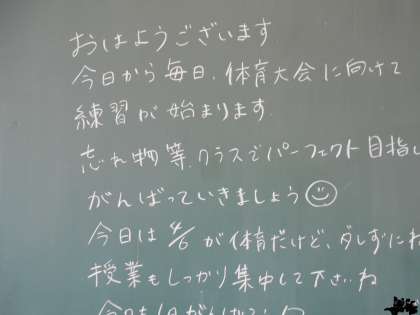 おはようございます
今日から毎日、体育大会に向けて
練習が始まります.
忘れ物等、クラスでパーフェクト目指し
がんばっていきましょう
今日は4/6が体育だけど、ダレずにね
授業もしっかり集中して下さいね